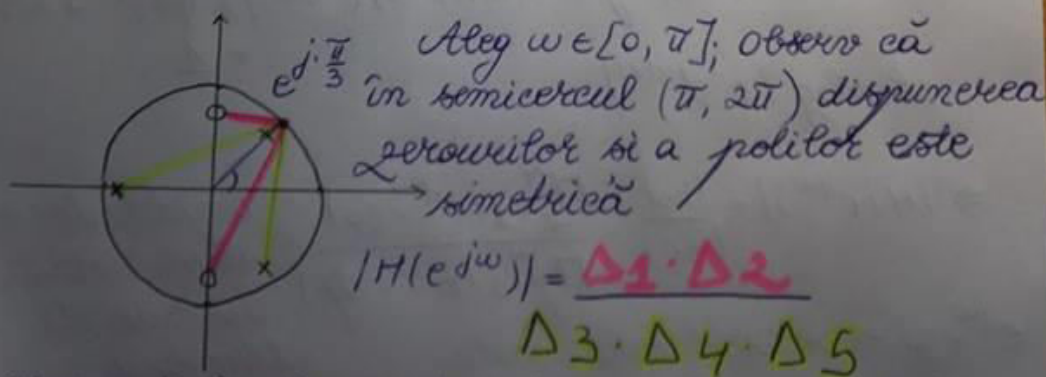 e^{j·π/3}
Aleg ω∈[0, π]; Observ că
în semicercul (π, 2π) dispunerea
zerourilor și a polilor este
simetrică
|H(e^{jω})| = Δ1·Δ2
Δ3·Δ4·Δ5